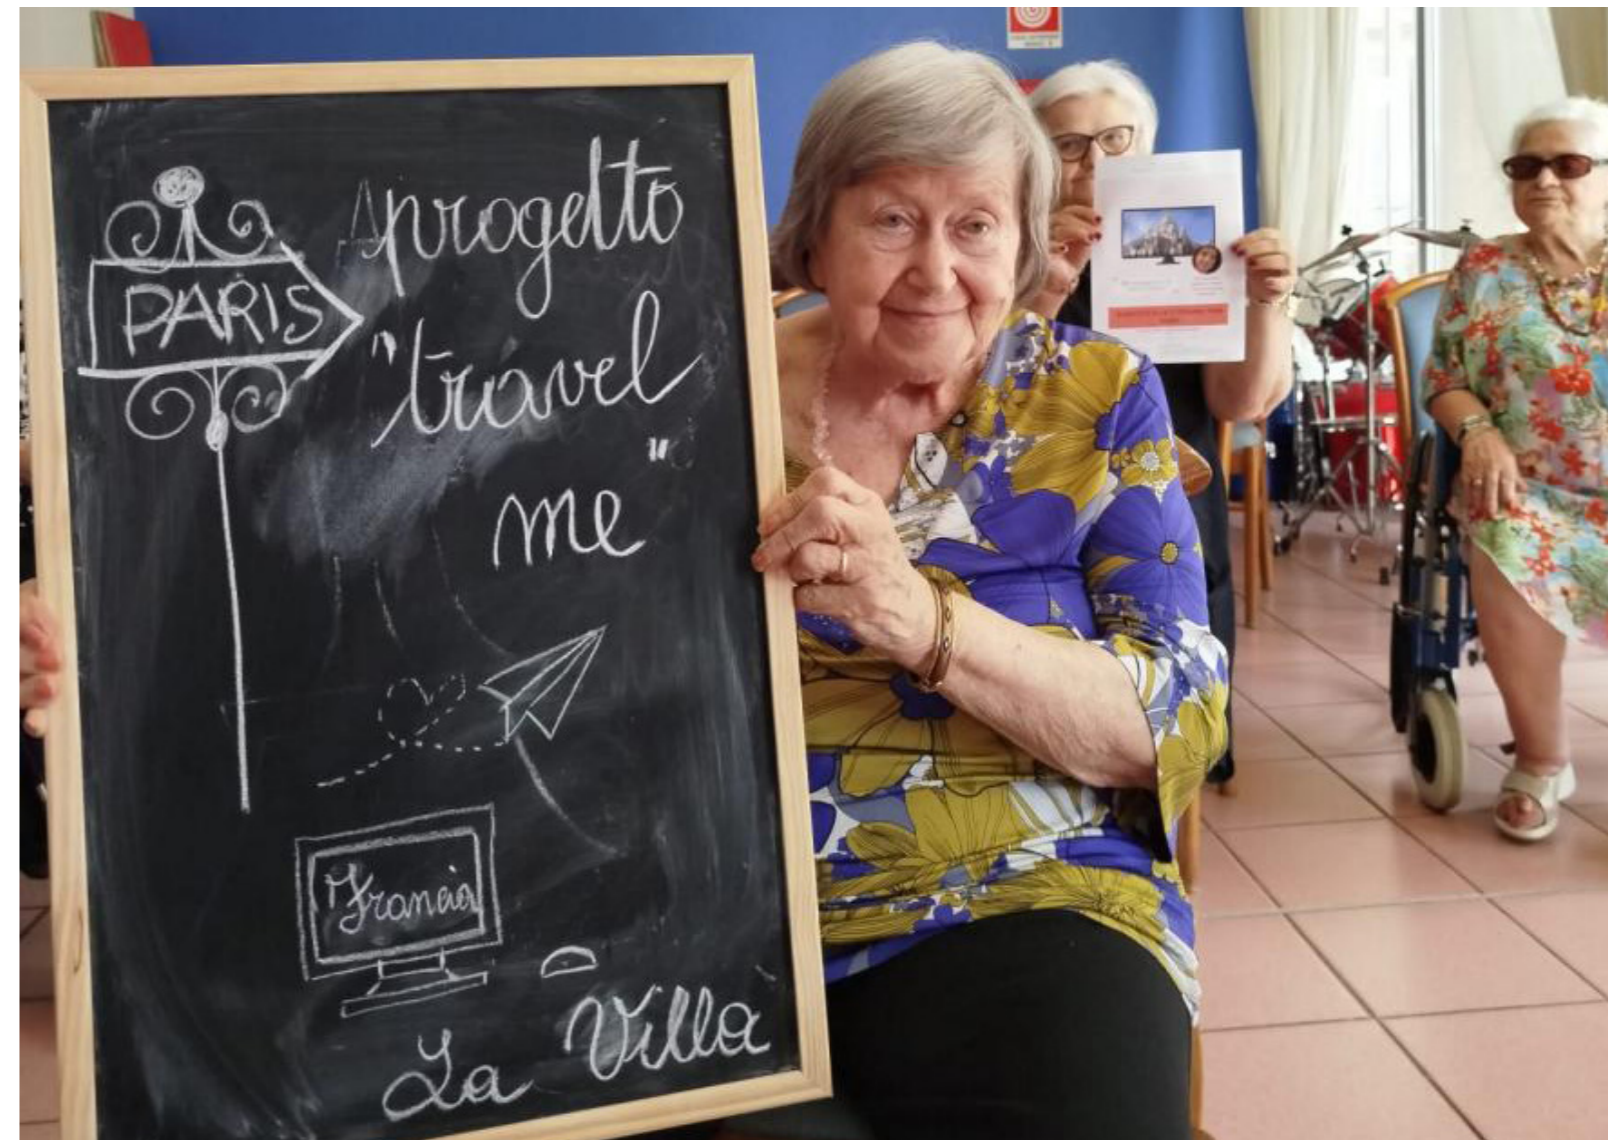 PARIS
progetto
"travel
me"
Francia
La Villa